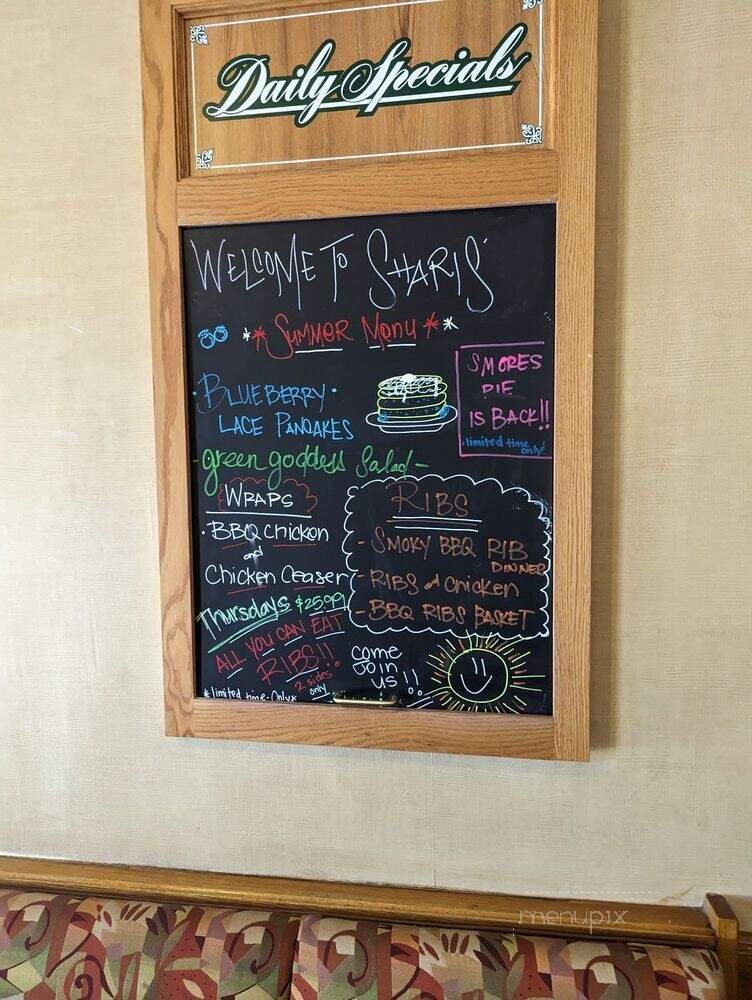 Daily Specials
WELCOME TO SHARIS'
* * SUMMER MENU * *
SMORES
PIE
IS BACK!!
• limited time
only!
• BLUEBERRY •
LACE PANCAKES
- green goddess Salad -
WRAPS
• BBQ Chicken
and
Chicken Ceaser
Thursdays $25.99
ALL YOU CAN EAT
RIBS!!
2 sides
only
* limited time Only *
RIBS
- SMOKY BBQ RIB
DINNER
- RIBS and Chicken
- BBQ RIBS BASKET
come
Join
us!!
menupix